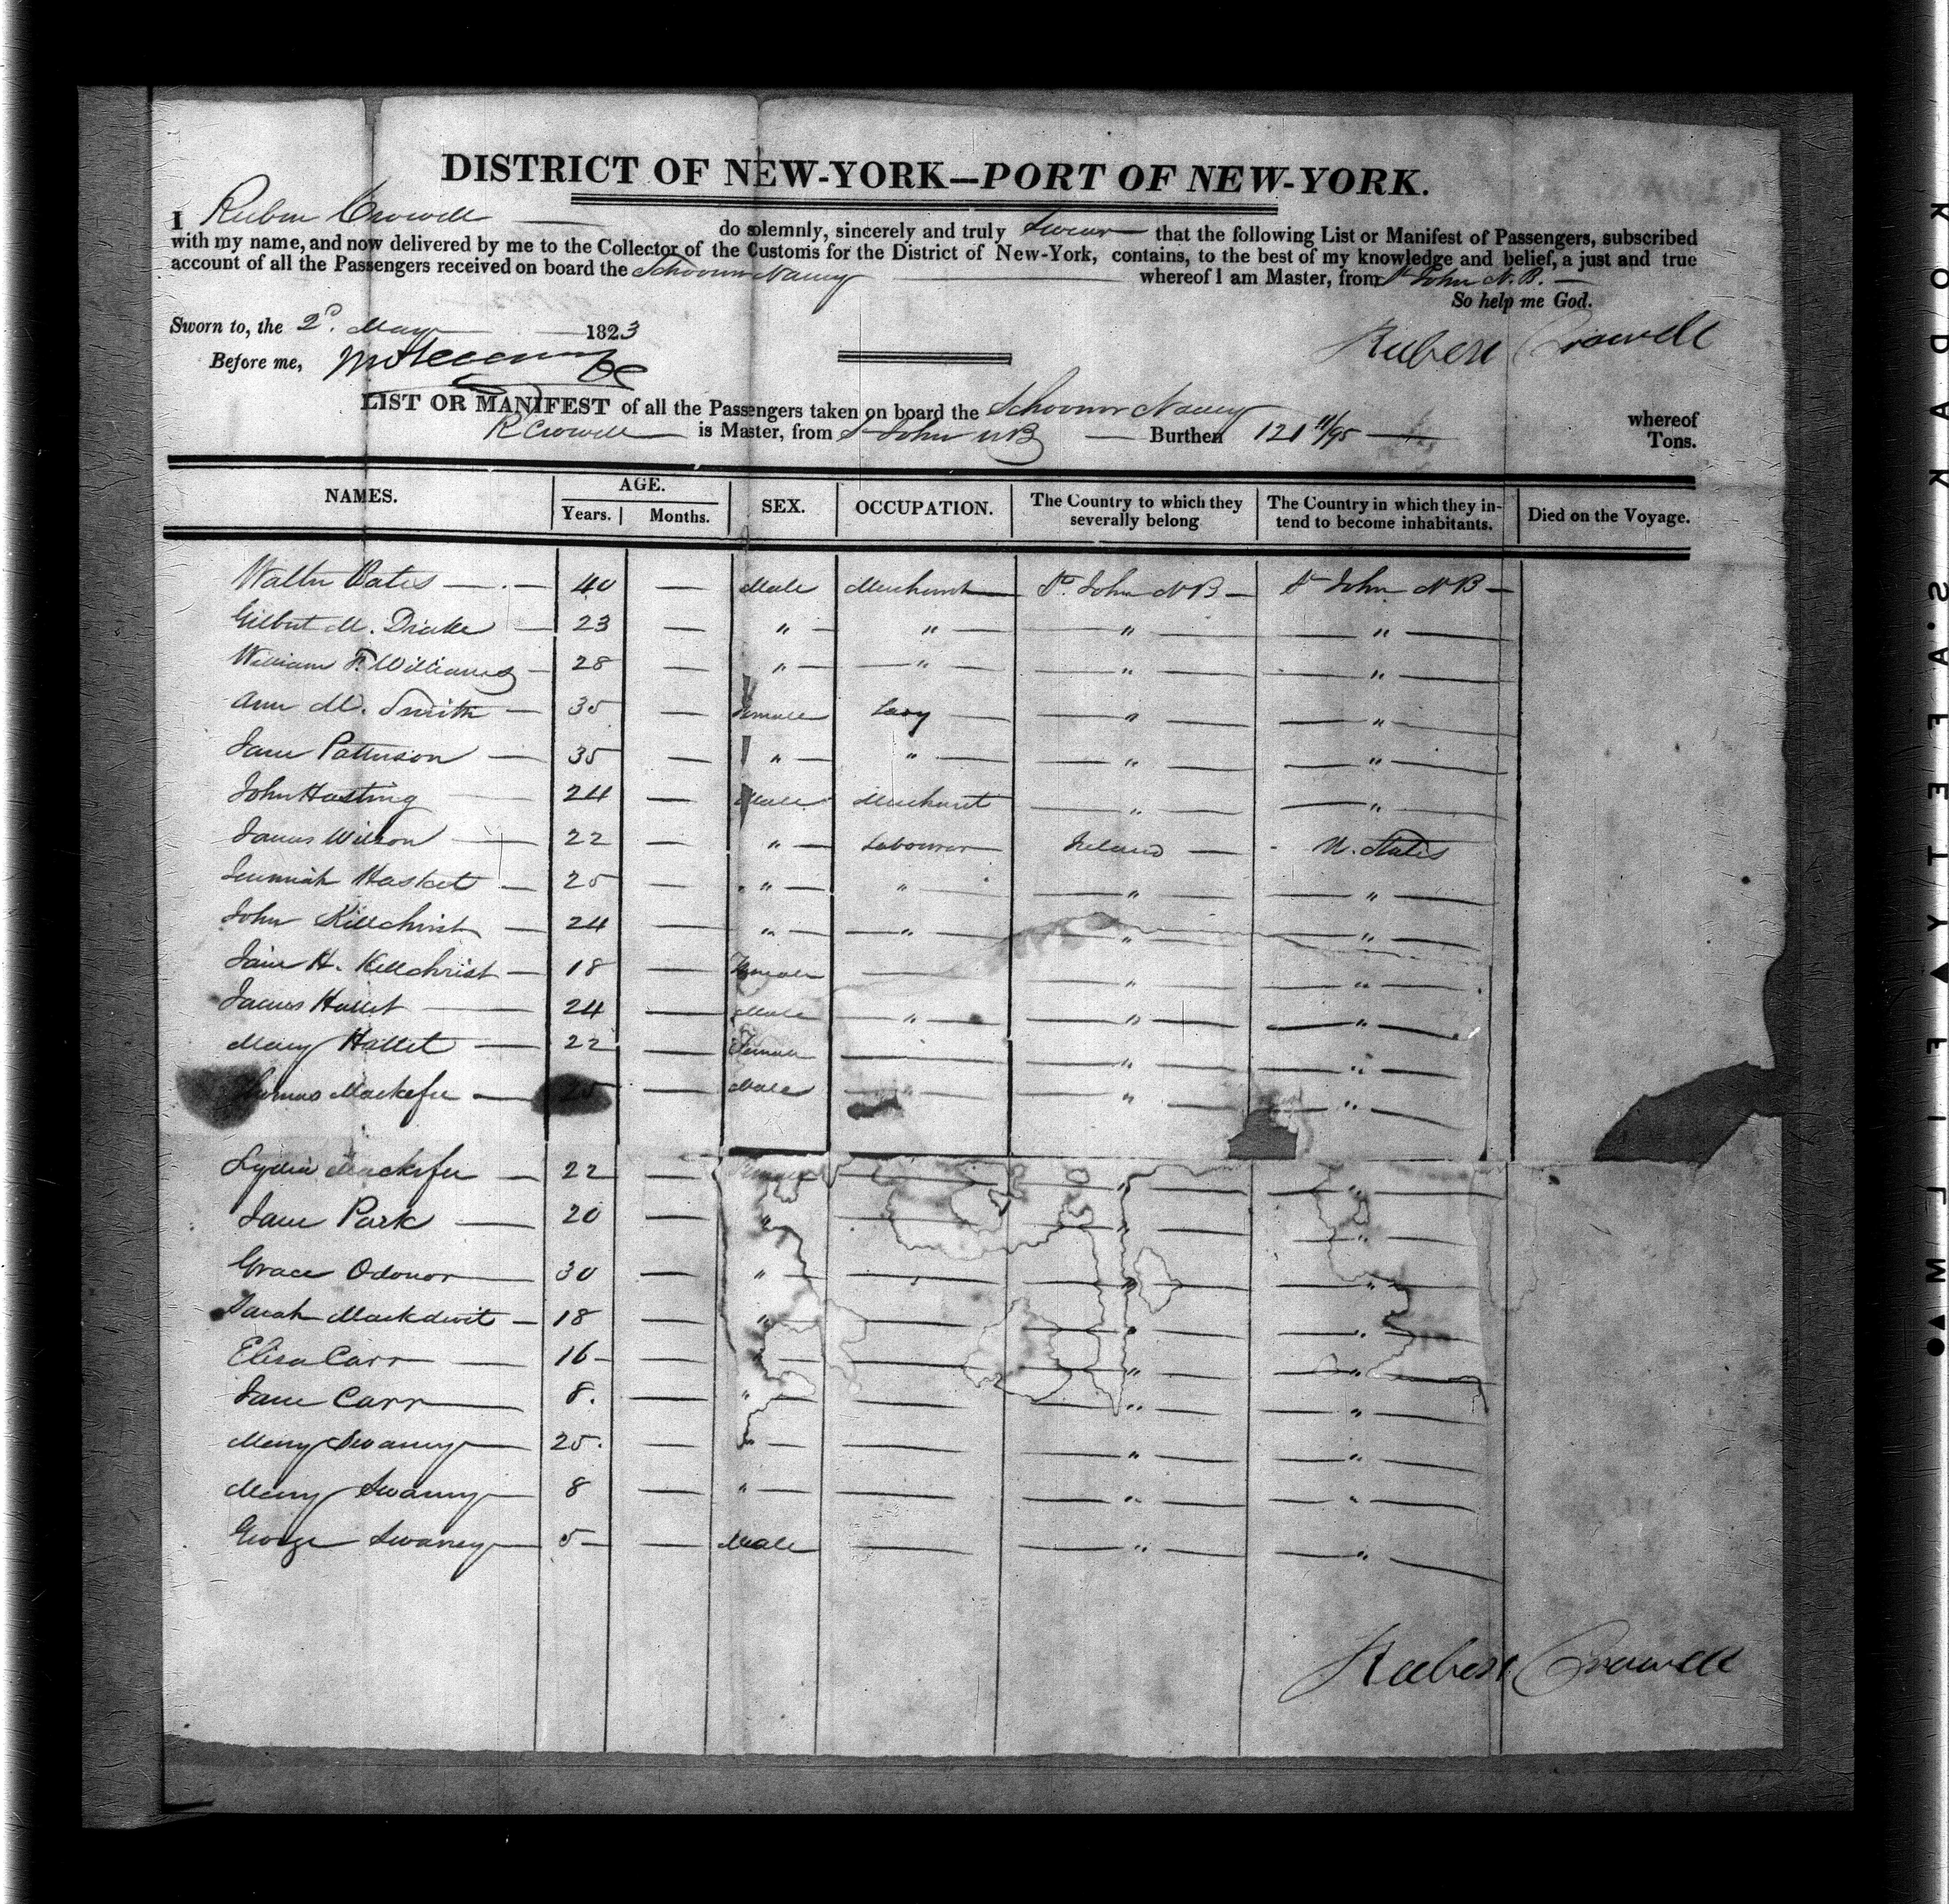 DISTRICT OF NEW-YORK—PORT OF NEW-YORK.
I Reuben Crowell do solemnly, sincerely and truly Swear that the following List or Manifest of Passengers, subscribed
with my name, and now delivered by me to the Collector of the Customs for the District of New-York, contains, to the best of my knowledge and belief, a just and true
account of all the Passengers received on board the Schooner Nancy whereof I am Master, from St John N.B.
So help me God.
Sworn to, the 2d. May 1823
Reuben Crowell
Before me,
LIST OR MANIFEST of all the Passengers taken on board the Schooner Nancy whereof
R Crowell is Master, from St John NB Burthen 121 11/95 Tons.
NAMES. AGE. Years. Months. SEX. OCCUPATION. The Country to which they severally belong The Country in which they intend to become inhabitants. Died on the Voyage.
Walter Bates — 40 — Male Merchant St. John NB St John NB
Gilbert M. Drake — 23 — " " " "
William F. Williams — 28 — " " " "
Ann M. Smith — 35 — Female Lady " "
Jane Patterson — 35 — " " " "
John Hasting — 24 — Male Merchant " "
James Wilson — 22 — " Labourer Ireland U. States
Jeremiah Hasket — 25 — " " " "
John Killchrist — 24 — " " " "
Jane H. Killchrist — 18 — Female — " "
James Hallet — 24 — Male " " "
Mary Hallet — 22 — Female — " "
Thomas Mackefee — 25 — Male " " "
Lydia Mackefee — 22 — Female — " "
Jane Park — 20 — " — " "
Grace Odonor — 30 — " — " "
Sarah Mackdevit — 18 — " — " "
Eliza Carr — 16 — " — " "
Jane Carr — 8. — " — " "
Mary Swaney — 25. — " — " "
Mary Swanny — 8 — " — " "
George Swaney — 5 — Male — " "
Reuben Crowell
KODAK S.AFETY ▲ FILM ▼●